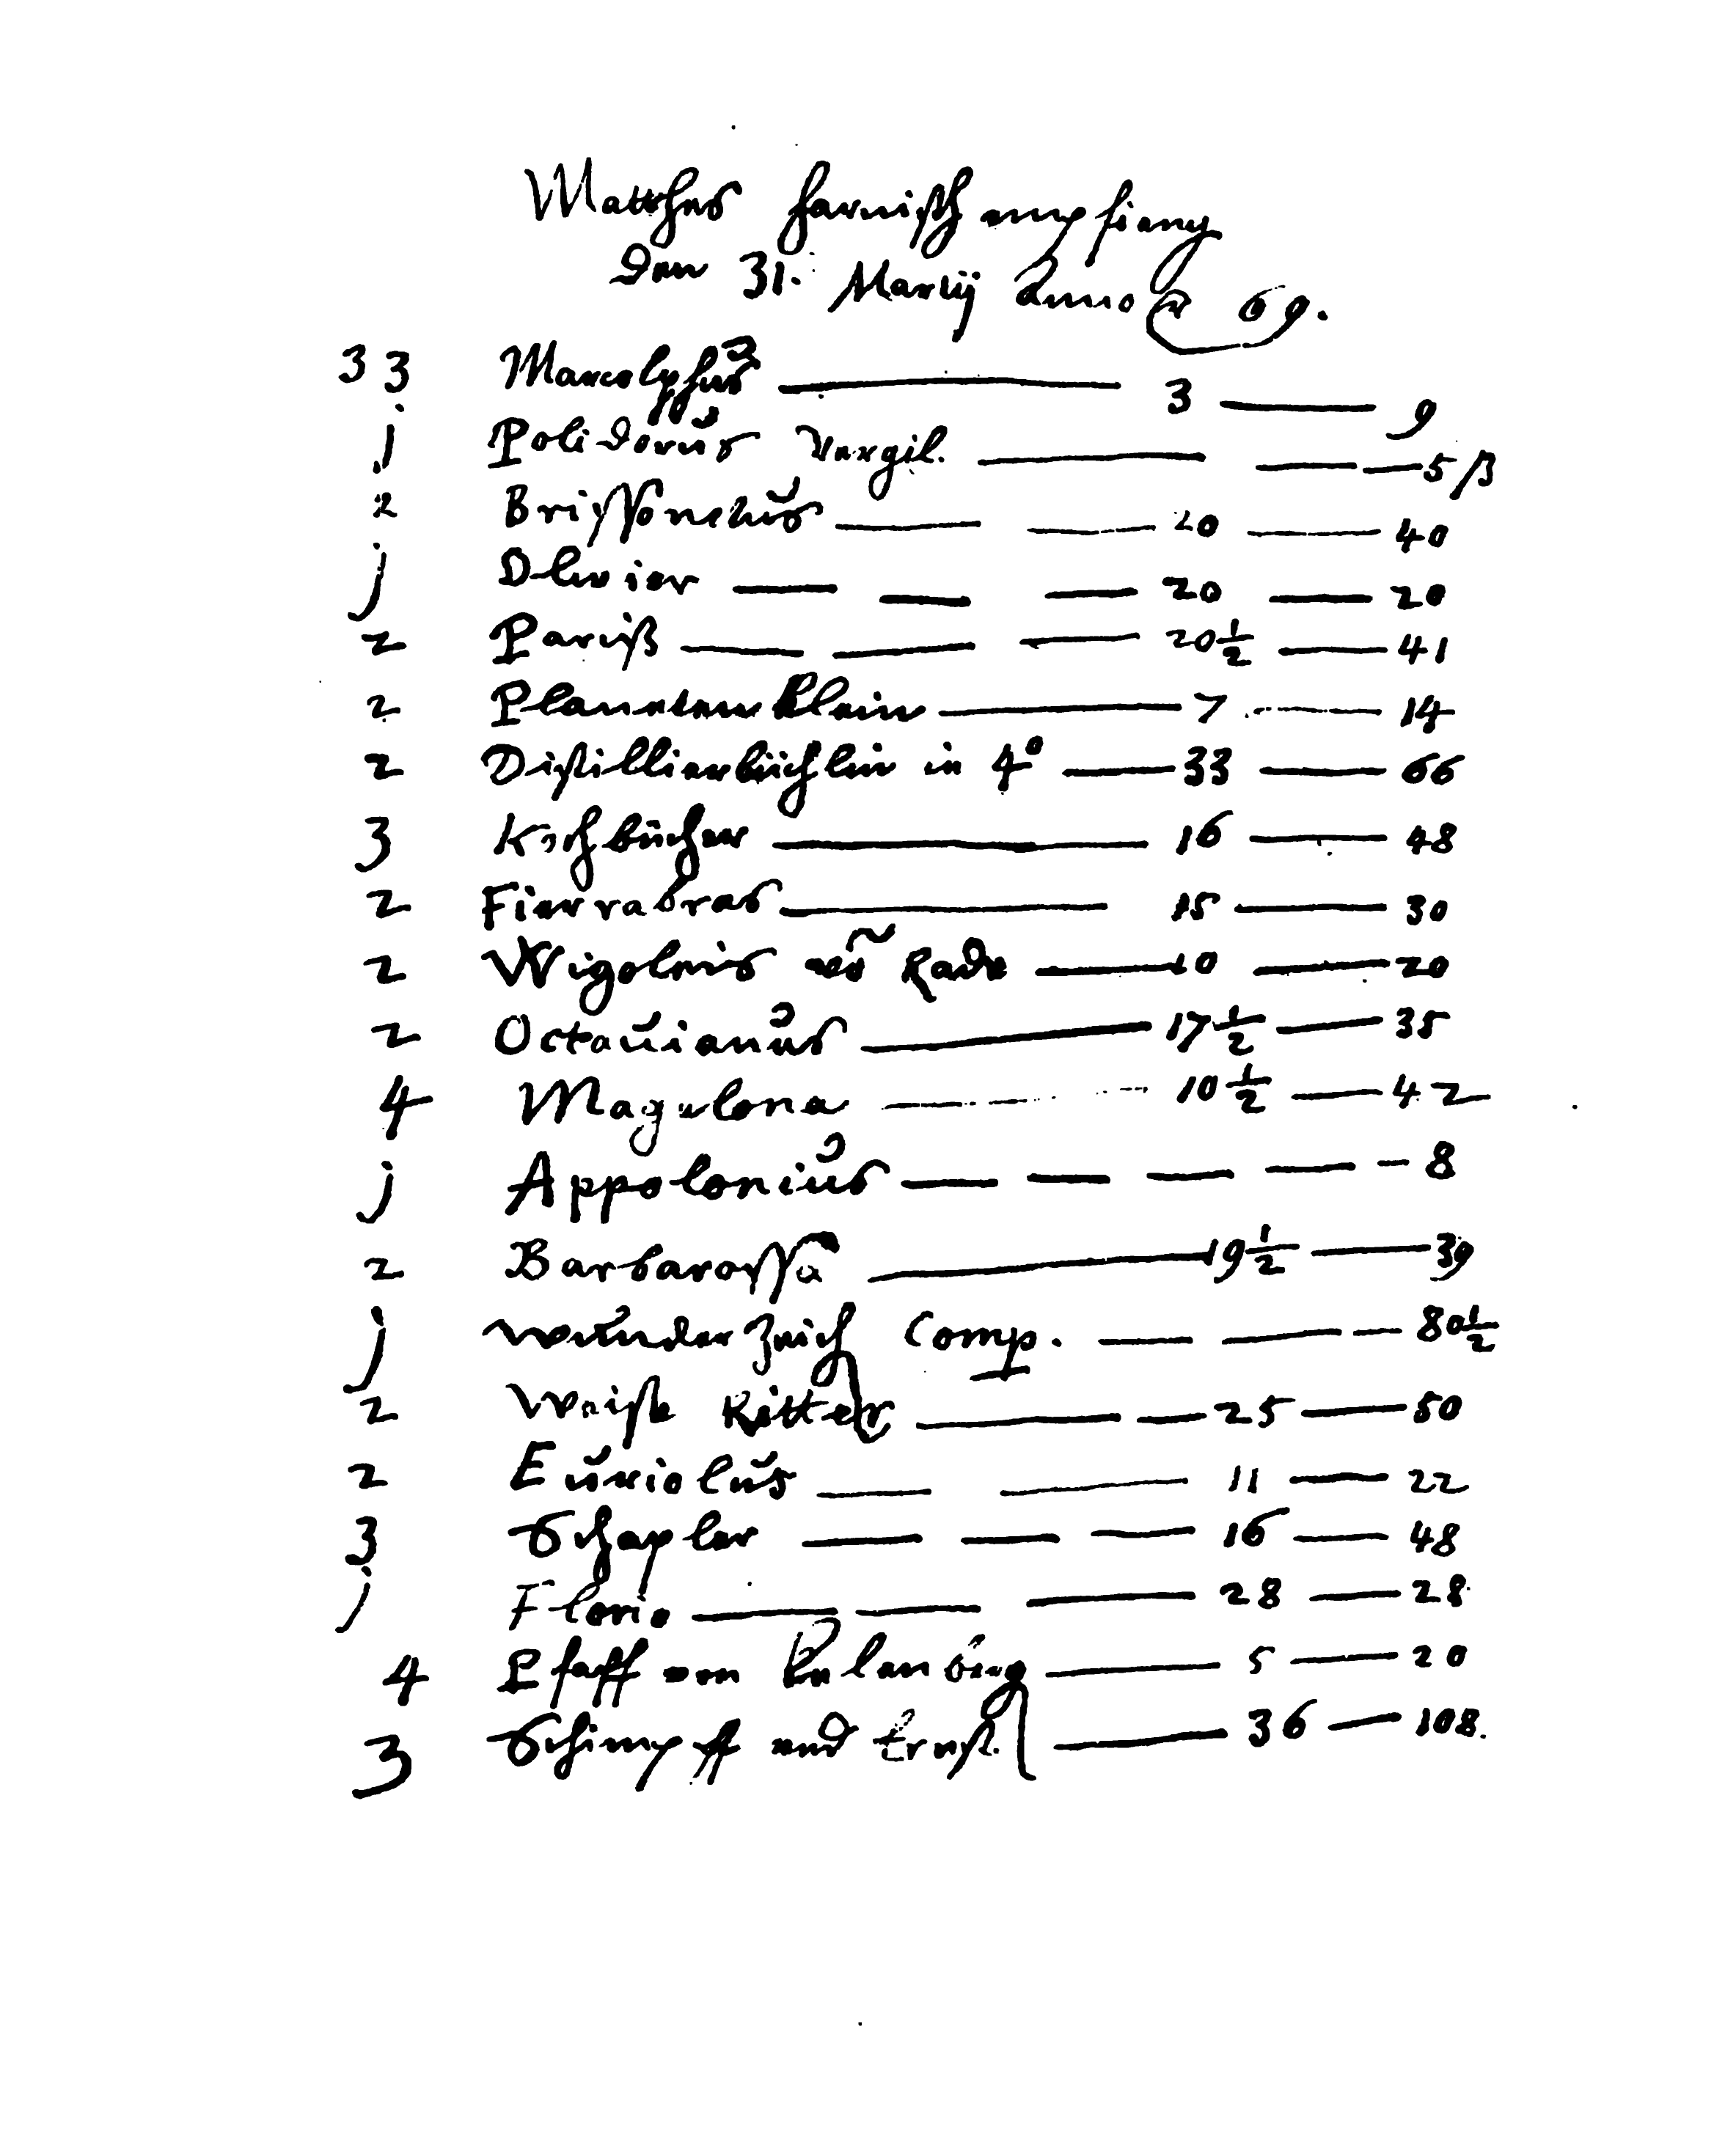 Mattheus harnisch empfieng
den 31. Marcij Anno &c 69.
33 Marcolphus — 3 — 9
j Polidorus Vergil. — 5 ß
2 Brissonetus — 20 — 40
j Olivier — 20 — 20
2 Pariß — 20½ — 41
2 Planeten klein — 7 — 14
2 Distillierbüchlein in 4º — 33 — 66
3 Kochbücher — 16 — 48
2 Fierrabras — 15 — 30
2 Wigoleis võ Rade — 10 — 20
2 Octauianus — 17½ — 35
4 Magelona — 10½ — 42
j Appolonius — 8
2 Barbarossa — 19½ — 39
j wunderzeich Comp. — 80½
2 Weiße Ritter — 25 — 50
2 Euriolus — 11 — 22
3 Schapler — 16 — 48
j Florio — 28 — 28
4 Pfaff vom Kalenberg — 5 — 20
3 Schimpff und Ernst — 36 — 108.